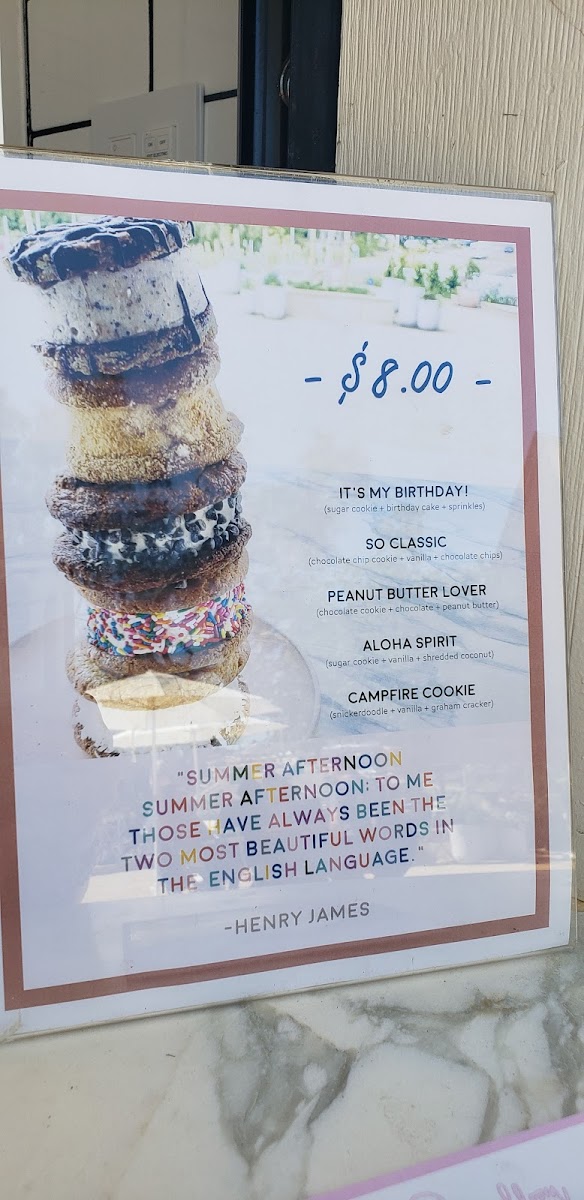 - $8.00 -
IT'S MY BIRTHDAY!
(sugar cookie + birthday cake + sprinkles)
SO CLASSIC
(chocolate chip cookie + vanilla + chocolate chips)
PEANUT BUTTER LOVER
(chocolate cookie + chocolate + peanut butter)
ALOHA SPIRIT
(sugar cookie + vanilla + shredded coconut)
CAMPFIRE COOKIE
(snickerdoodle + vanilla + graham cracker)
"SUMMER AFTERNOON
SUMMER AFTERNOON; TO ME
THOSE HAVE ALWAYS BEEN THE
TWO MOST BEAUTIFUL WORDS IN
THE ENGLISH LANGUAGE."
-HENRY JAMES